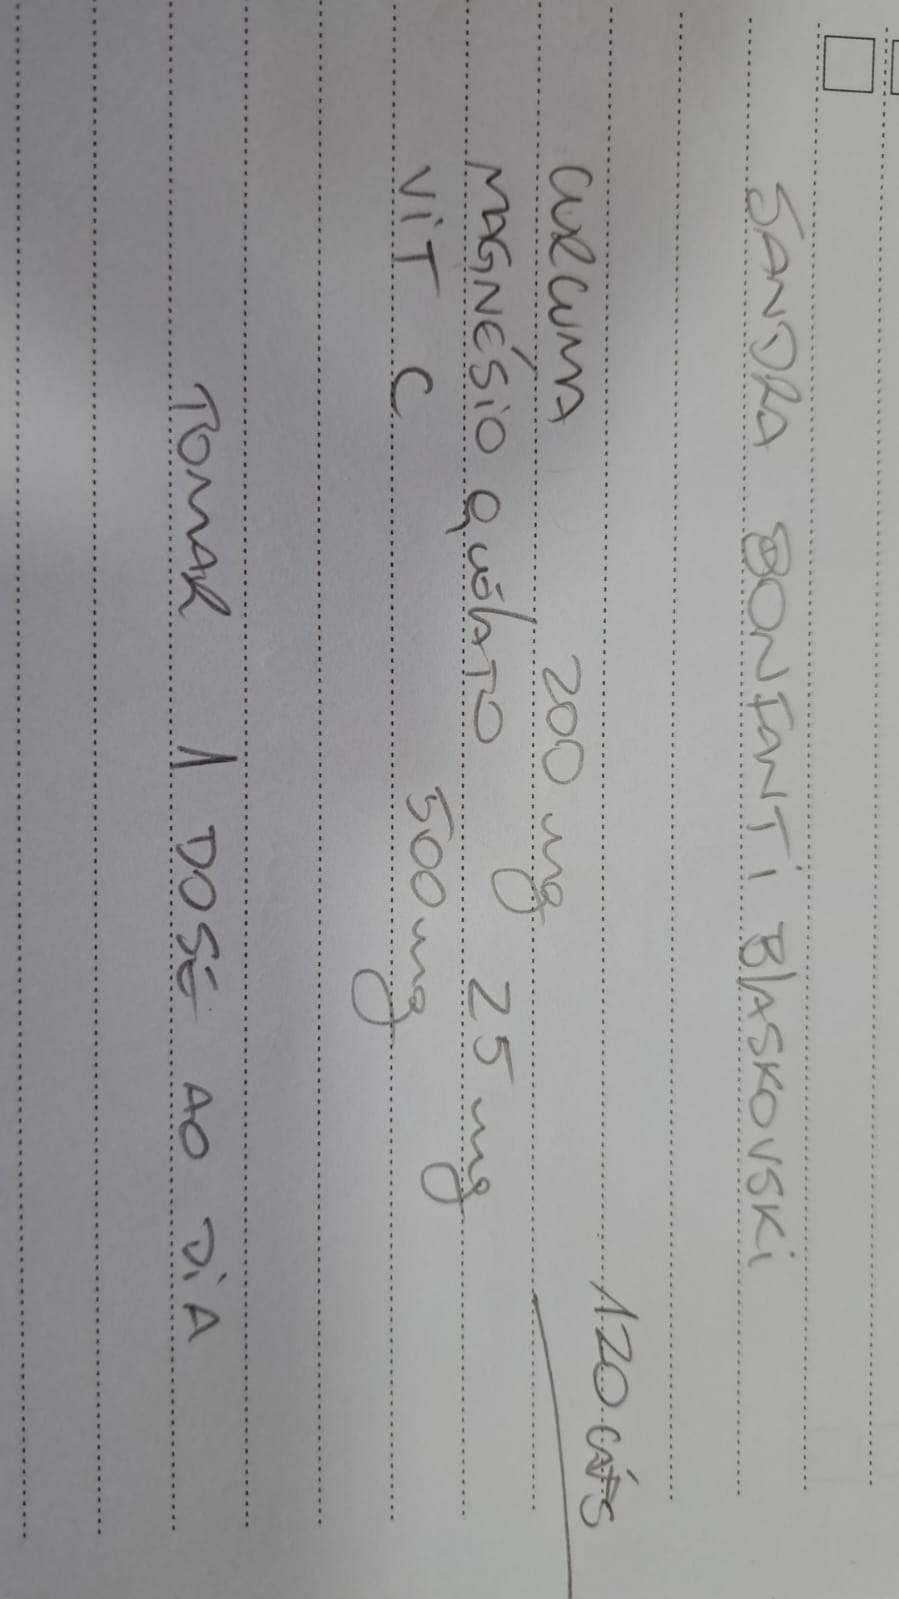 SANDRA BONFANTI BLASKOVSKI
120 CÁPS
CURCUMA 200 mg
MAGNÉSIO QUÉLATO 25 mg
VIT C 500 mg
TOMAR 1 DOSE AO DIA